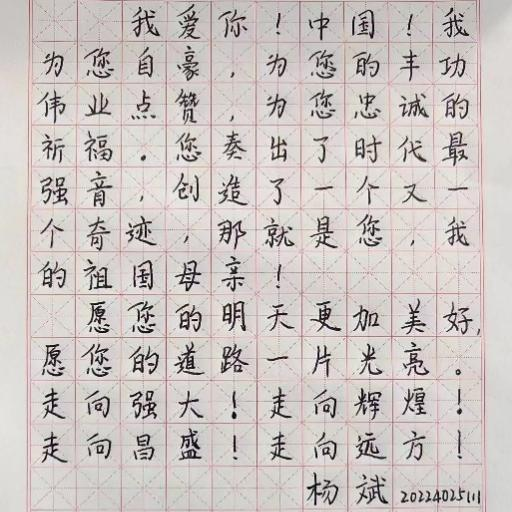 我爱你!中国!我
为您自豪,为您的丰功
伟业点赞,为您忠诚的
祈福。您奏出了时代最
强音,创造了一个又一
个奇迹,那就是您,我
的祖国母亲!
愿您的明天更加美好,
愿您的道路一片光亮。
走向强大!走向辉煌!
走向昌盛!走向远方!
杨斌 2022402511